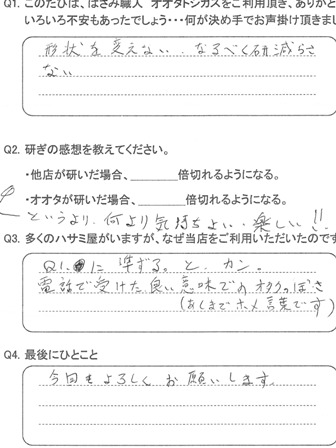 Q1. このたびは、はさみ職人 オオタトシカズをご利用頂き、ありがと
いろいろ不安もあったでしょう・・・何が決め手でお声掛け頂きまし
形状を変えない. なるべく研減らさ
ない
Q2. 研ぎの感想を教えてください。
・他店が研いだ場合、______倍切れるようになる。
・オオタが研いだ場合、______倍切れるようになる。
というより. 何より気持ちよい・楽しい!!
Q3. 多くのハサミ屋がいますが、なぜ当店をご利用いただいたのです
Q1.に準ずる。と. カン。
電話で受けた良い意味でのオタクっぽさ
(あくまでホメ言葉です)
Q4. 最後にひとこと
今回もよろしくお願いします.